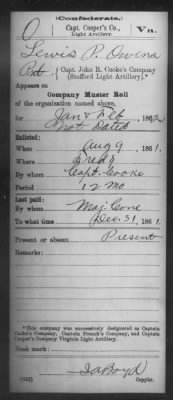 (Confederate.)
O Capt. Cooper's Co., Va.
Light Artillery.
Lewis P. Owens
Pvt., { Capt. John R. Cooke's Company
(Stafford Light Artillery).*
Appears on
Company Muster Roll
of the organization named above,
for Jan & Feb, 1862
Not Dated
Enlisted:
When Aug 9, 1861.
Where
By whom Capt. Cooke
Period 12 Mo.
Last paid:
By whom Maj. Cone
To what time Dec. 31, 1861.
Present or absent Present
Remarks:
*This company was successively designated as Captain
Cooke's Company, Captain French's Company, and Captain
Cooper's Company Virginia Light Artillery.
Book mark:
(642)
Copyist.